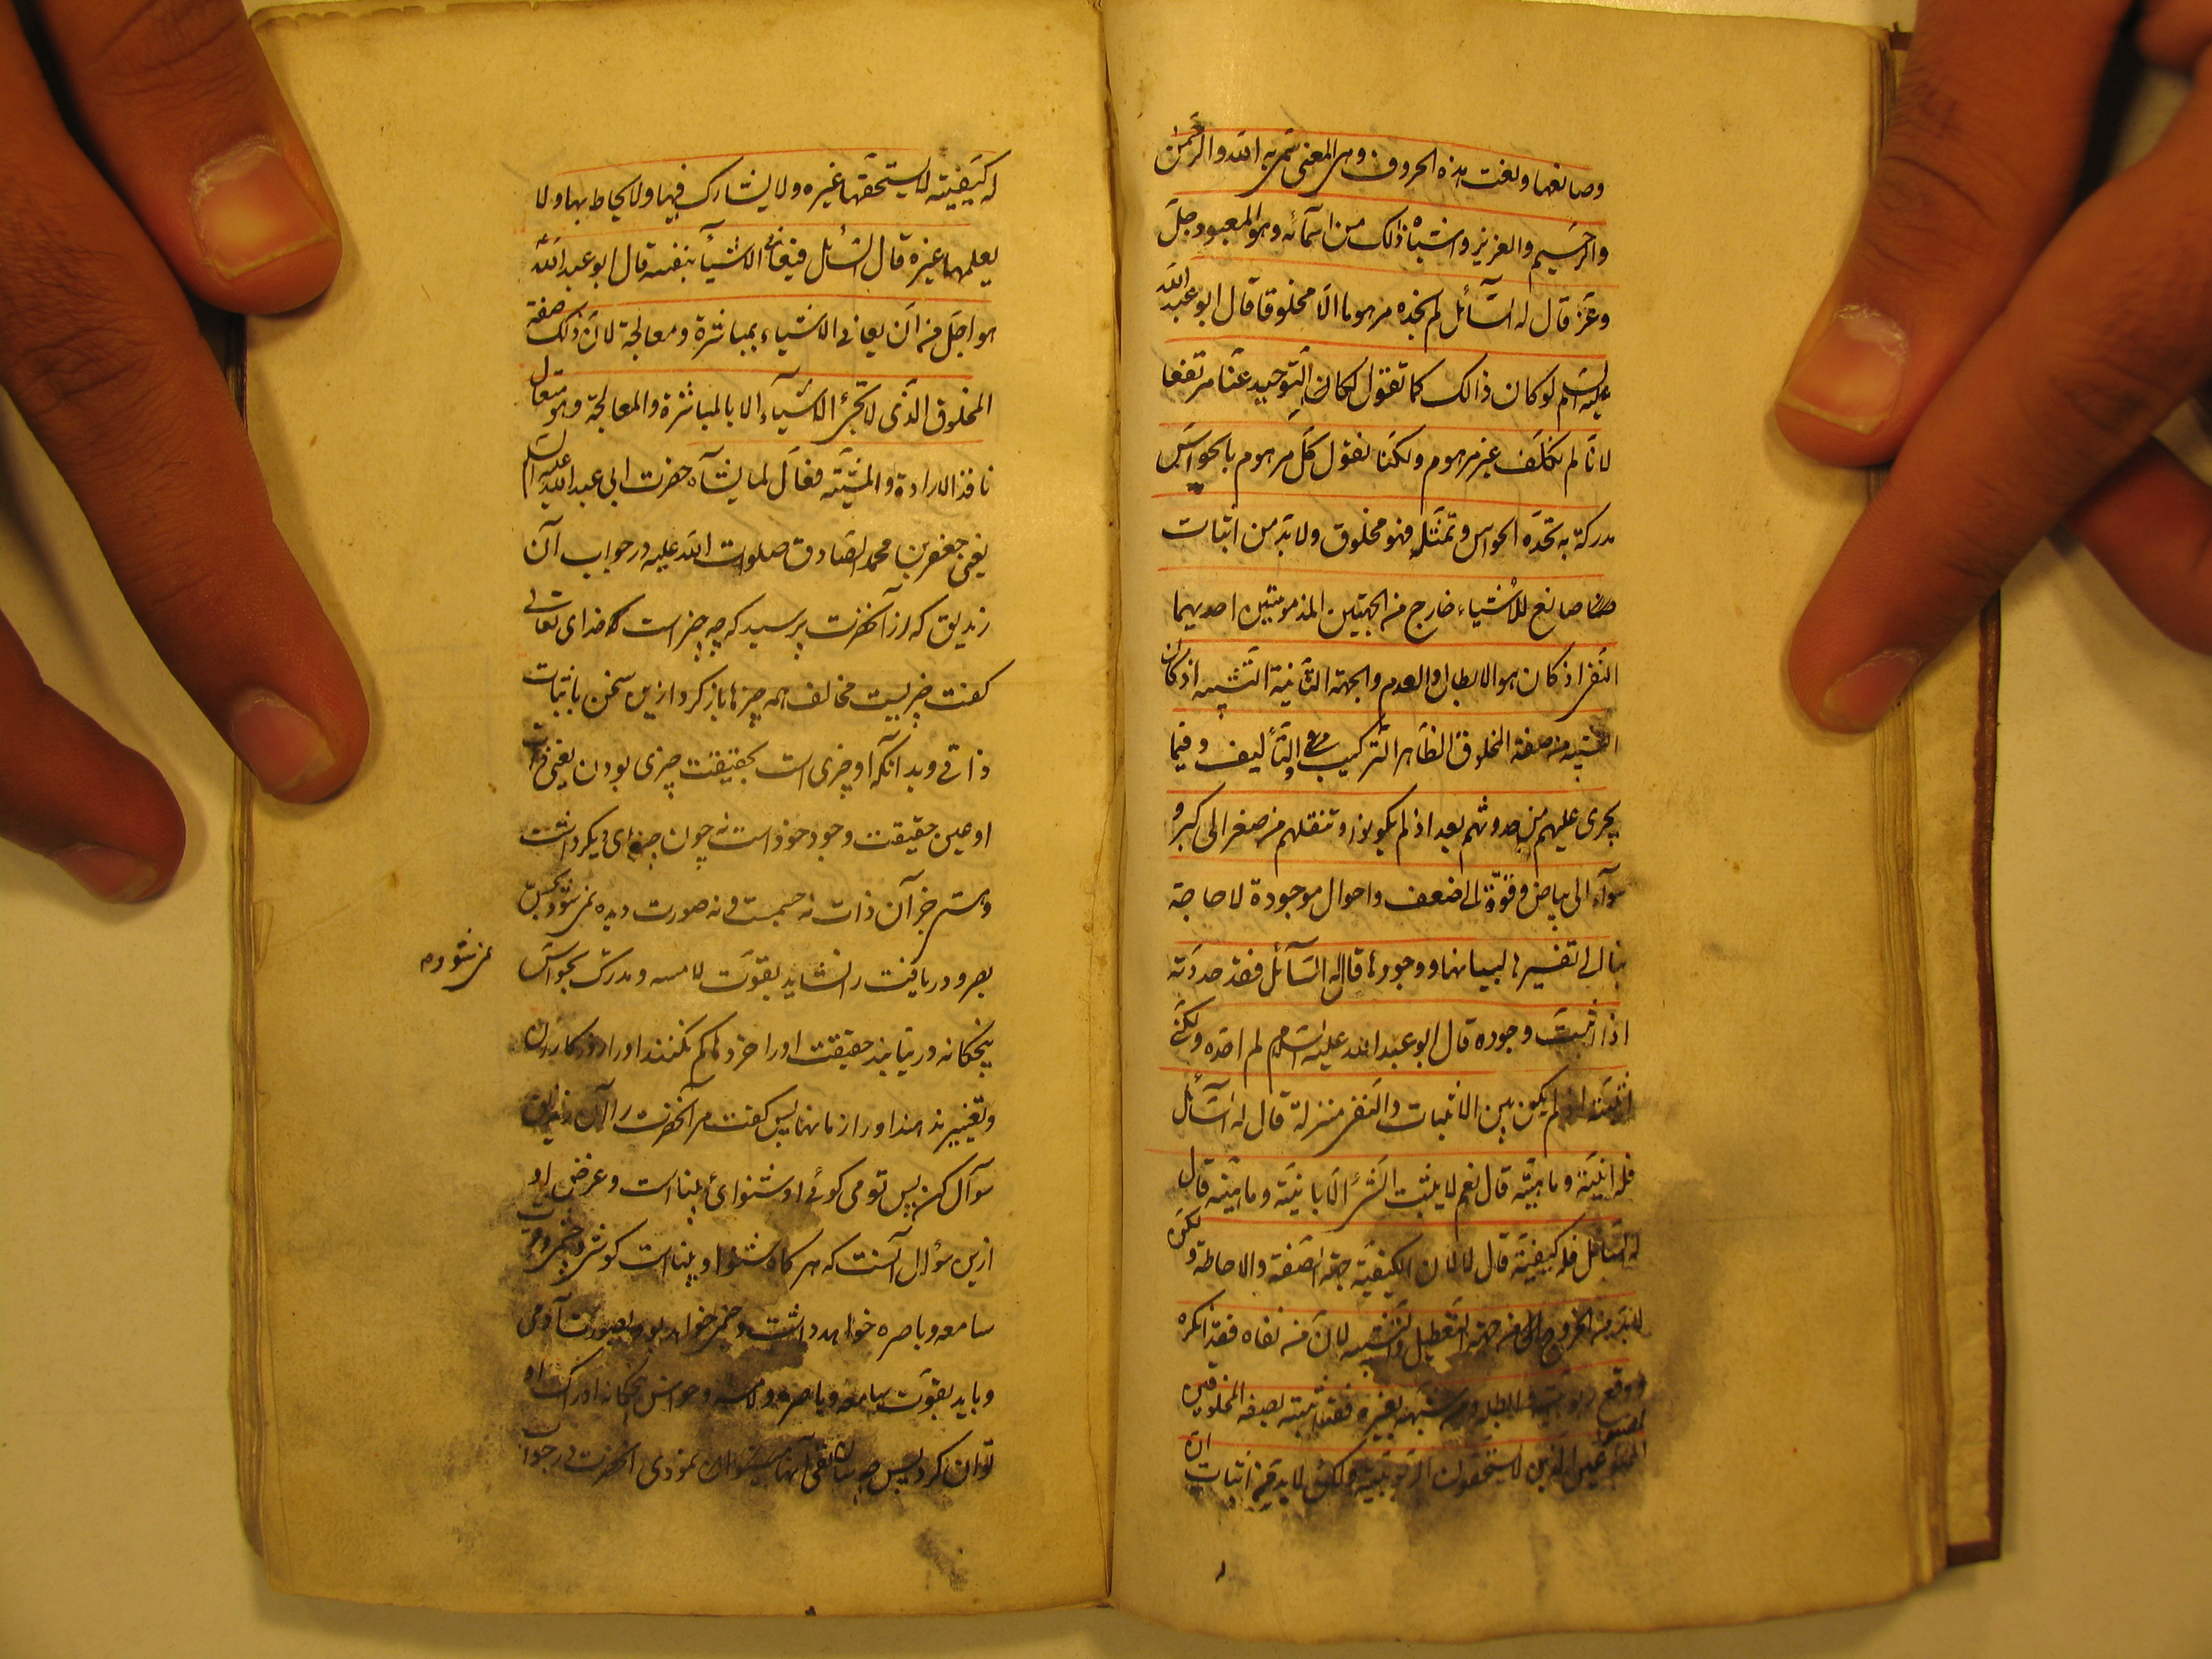 وصانعها ونعت هذه الحروف وهی المعنی سمی به الله والرحمن
والرحیم والعزیز واشباه ذالک من اسمائه وهو المعبود جل
وعز قال له السائل لم نجده مرهوما الا مخلوقا قال ابو عبد الله
علیه السلم لو کان ذالک کما تقول لکان التوحید عنا مرتفعا
لانا لم نکلف غیر مرهوم ولکنا نقول کل مرهوم بالحواس
مدرکة به تحده الحواس وتمثله فهو مخلوق ولا بد من اثبات
صانع للاشیاء خارج من الجهتین المذمومتین احدیهما
النفی اذ کان هو الابطال والعدم والجهة الثانیة التشبیه اذ کان
التشبیه من صفة المخلوق الظاهر الترکیب والتألیف وفیما
یجری علیهم من حدوثهم بعد اذ لم یکونوا وتنقلهم من صغر الی کبر و
سواد الی بیاض وقوة الی ضعف واحوال موجودة لا حاجة
بنا الی تفسیرها لبیانها ووجودها قال له السائل فقد حددته
اذا اثبت وجوده قال ابو عبد الله علیه السلام لم احده ولکنی
اثبته اذ لم یکن بین الاثبات والنفی منزلة قال له السائل
فله انیة ومائیة قال نعم لا یثبت الشئ الا بانیة ومائیة قال
له السائل فله کیفیة قال لا لان الکیفیة جهة الصفة والاحاطة ولکن
لا بد من الخروج من جهة التعطیل والتشبیه لان من نفاه فقد انکره
ودفع ربوبیته وابطله ومن شبهه بغیره فقد اثبته بصفة المخلوقین
المصنوعین الذین لا یستحقون الربوبیة ولکن لا بد من اثبات ان
له کیفیته لا یستحقها غیره ولا یشارک فیها ولا یحاط بها ولا
یعلمها غیره قال السائل فیعانی الاشیاء بنفسه قال ابو عبد الله
هو اجل من ان یعانی الاشیاء بمباشرة ومعالجة لان ذلک صفة
المخلوق الذی لا تجئ الاشیاء الا بالمباشرة والمعالجة وهو متعال
نافذ الارادة والمشیة فعال لما یشاء حضرت ابی عبد الله علیه السلم
یعنی جعفر بن محمد الصادق صلوت الله علیه در جواب آن
زندیق که از آنحضرت پرسید که چه چیز است که خدای تعالی
گفت چیزیست مخالف همه چیزها باز کرد ازین سخن باثبات
ذاتی وبدانکه او چیزی است بحقیقت چیزی بودن یعنی ذات
او عین حقیقت وجود خود است نه چون چیزهای دیگر داشت
وهستی جز آن ذات نه جسمست ونه صورت دیده نمی شود بحس
بصر ودریافت را نشاید بقوت لامسه ومدرک بحواس
نمی شود م
پنجگانه در نیابند حقیقت او را خردها کم نکنند او را روزکاران
وتغییر ندهند او را زمانها پس گفت مر آنحضرت را آن زندیق
سوآل کن پس تو می گوئی او شنوای بینا است وغرض او
ازین سؤال آنست که هر گاه شنوا وبینا است گوش وچشم وقوت
سامعه وباصره خواهد داشت وجسم خواهد بود بصورت آدمی
وباید بقوت سامعه وباصره ولامسه وحواس پنجگانه ادراک او
توان کرد پس چه سان نفی آنها می توان نمودی آنحضرت در جواب